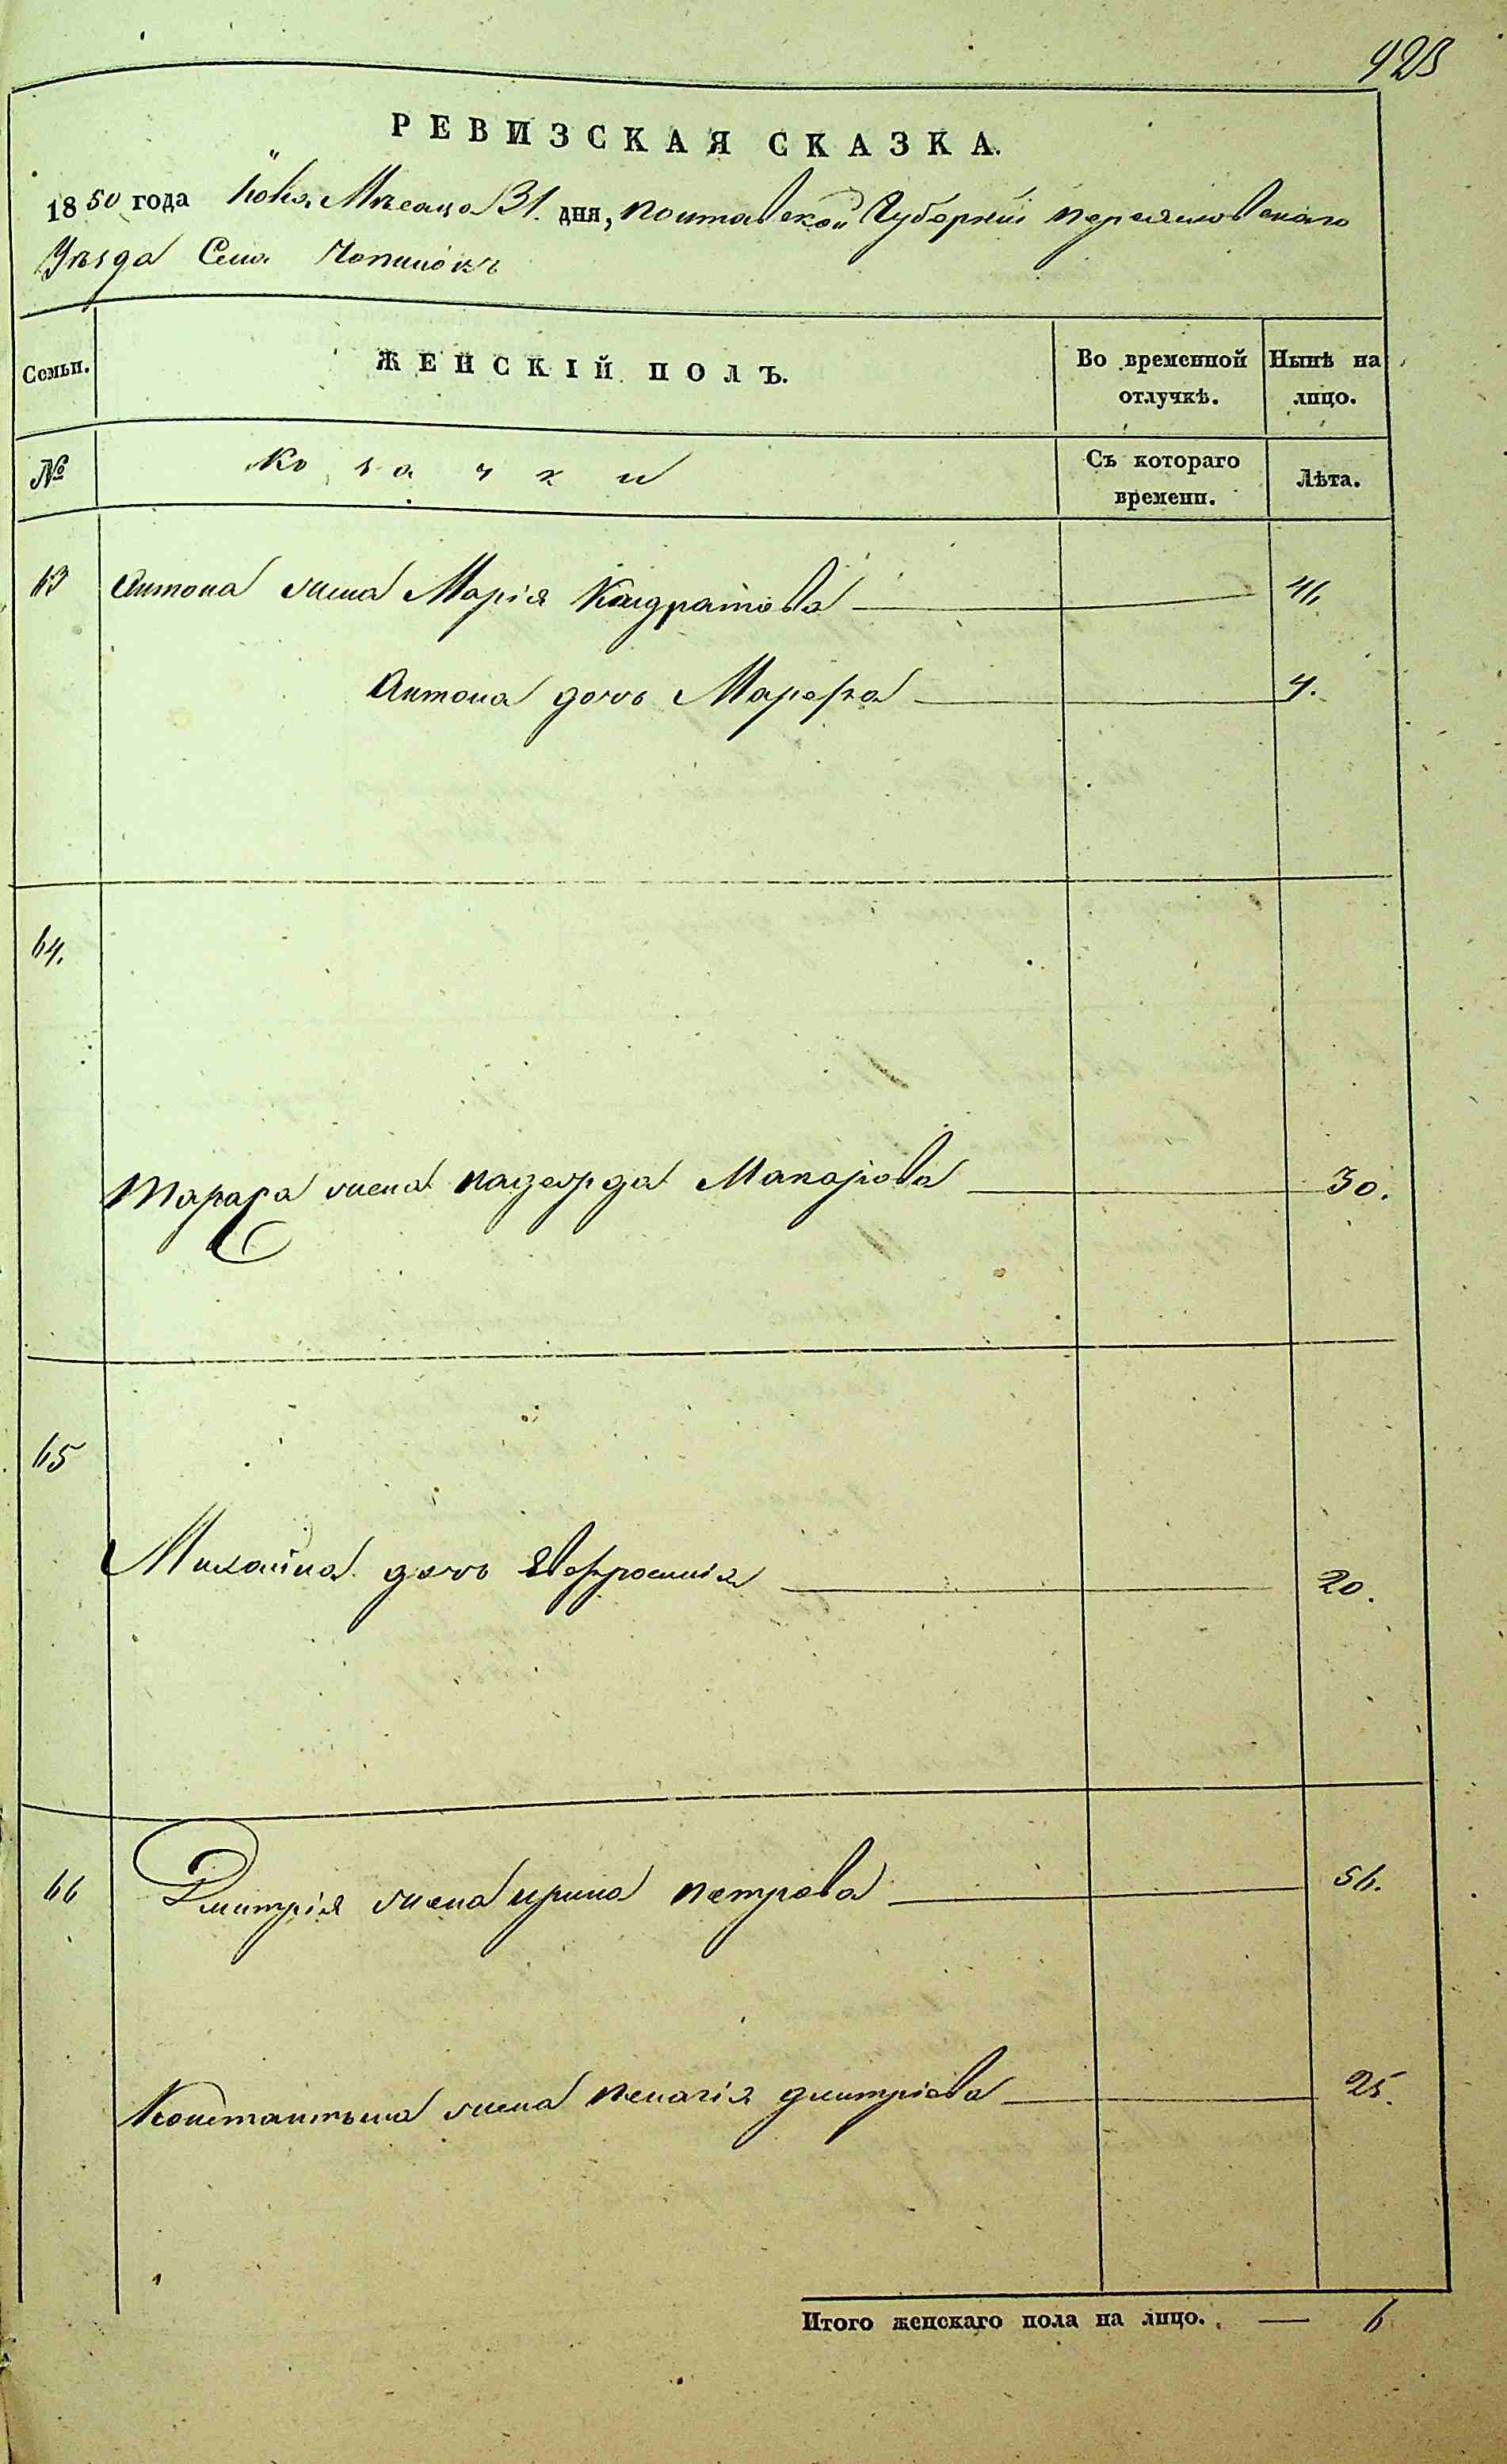 923
РЕВИЗСКАЯ СКАЗКА.
1850 года Июля Мѣсяца 31. дня, полтавской Губерніи переяславскаго
Уѣзда Села
Семьи. ЖЕНСКІЙ ПОЛЪ. Во временной отлучкѣ. Нынѣ на лицо.
№ Козачки Съ котораго времени. Лѣта.
63 Антона жена Марія Кандратова 46
Антона дочь Марѳа 4.
64.
Тараса жена Макарова 30.
65
Михайла дочь Евфросинія 20.
66 Дмитрія жена ирина петрова 56.
Константина жена пелагія дмитріева 25.
Итого женскаго пола на лицо. — 6